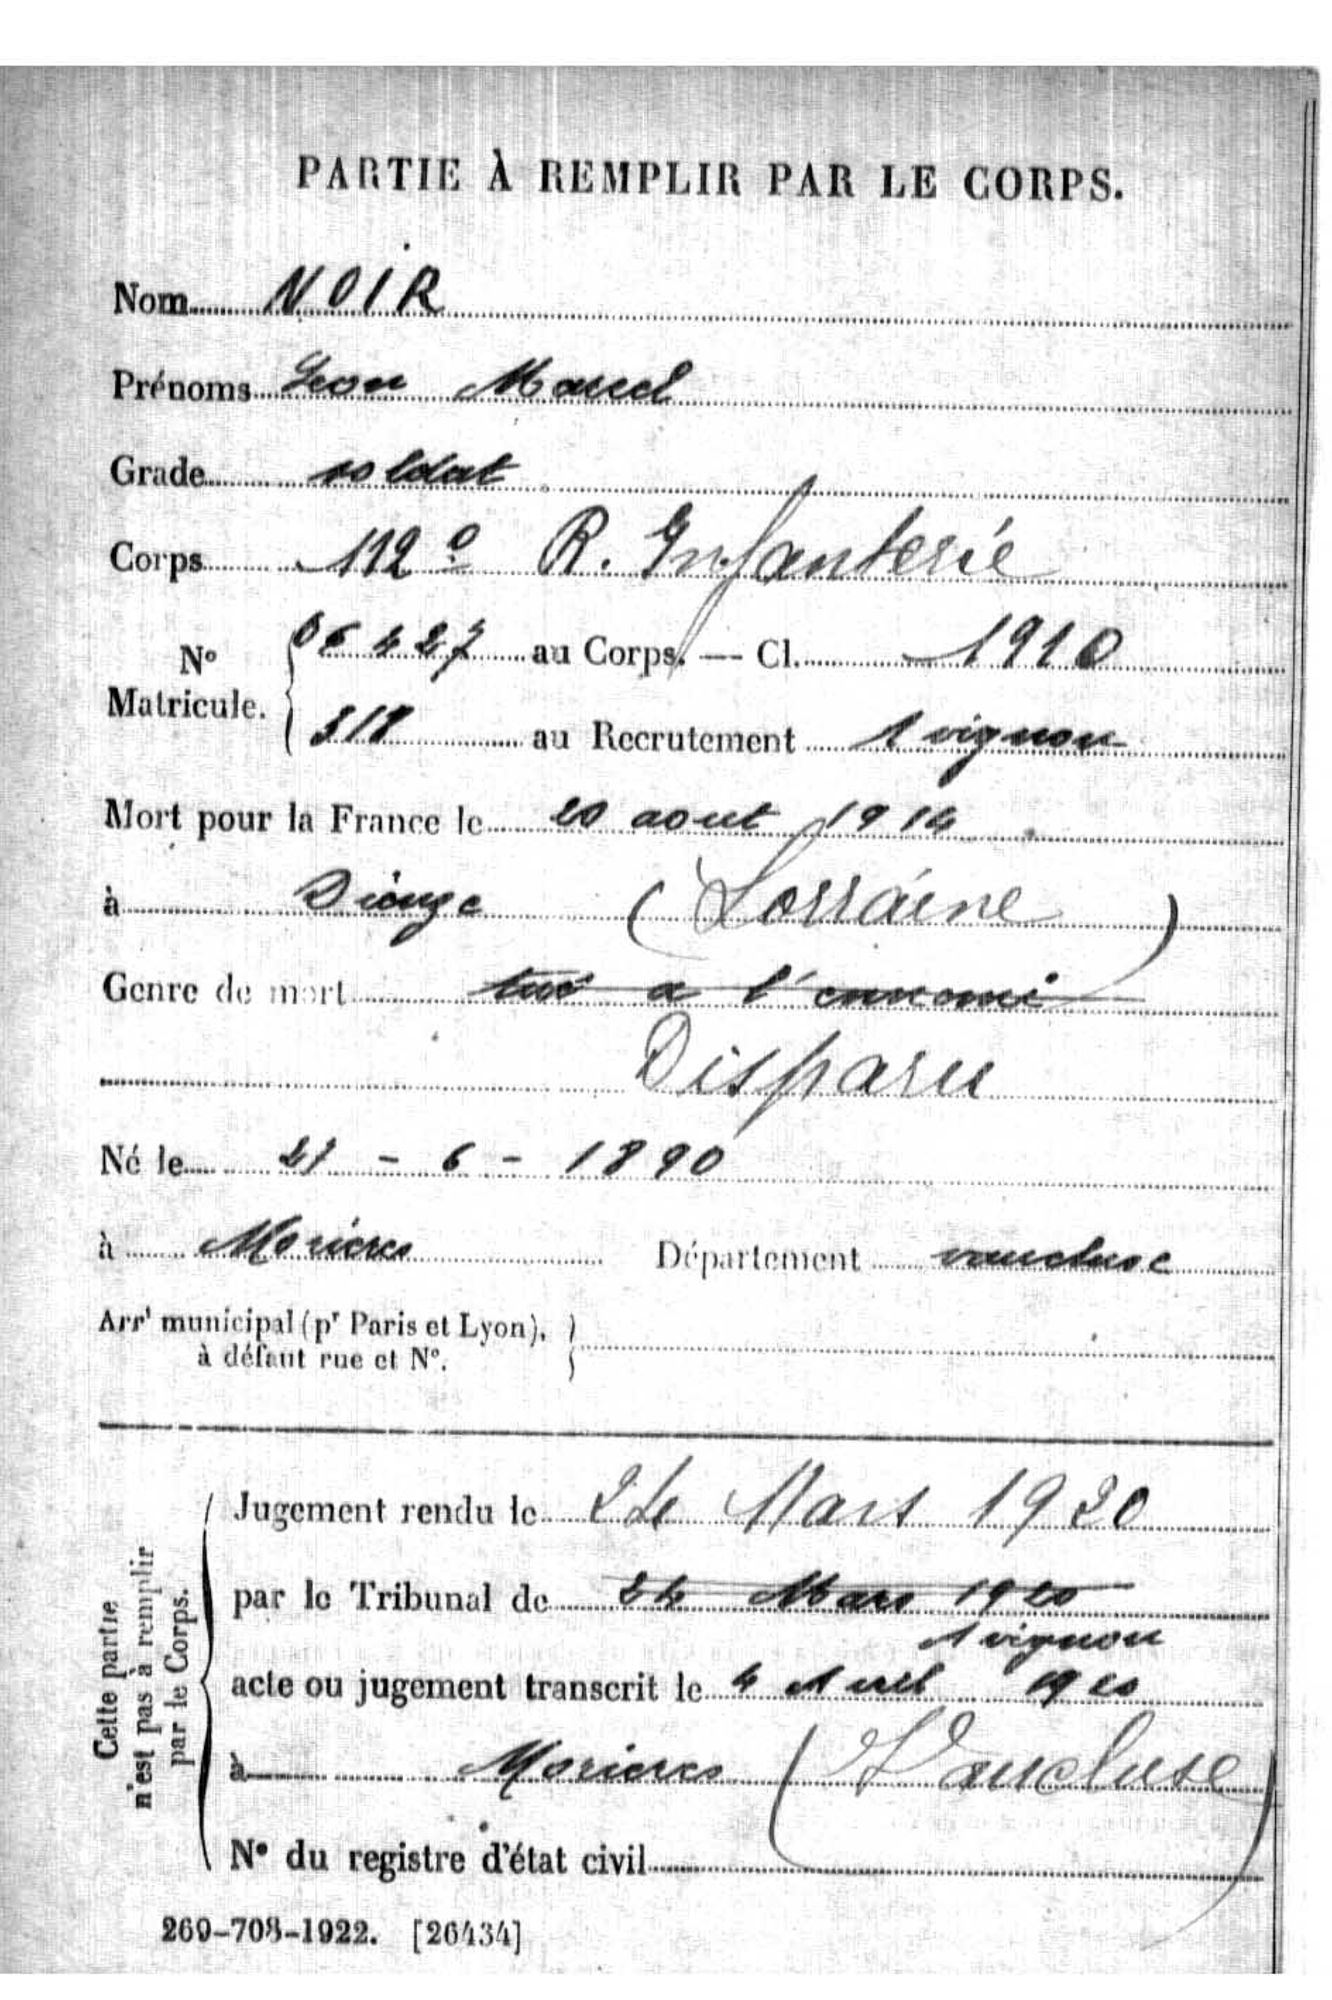 PARTIE À REMPLIR PAR LE CORPS.
Nom NOIR
Prénoms Leon Marcel
Grade soldat
Corps 112e R. Infanterie
N° Matricule. 06427 au Corps. — Cl. 1910
318 au Recrutement Avignon
Mort pour la France le 20 aout 1914
à Dieuze (Lorraine)
Genre de mort tué a l'ennemi
Disparu
Né le 21 - 6 - 1890
à Morières Département vaucluse
Arrt municipal (pr Paris et Lyon),
à défaut rue et N°.
Cette partie
n'est pas à remplir
par le Corps.
Jugement rendu le 24 Mars 1920
par le Tribunal de 24 Mars 1920
Avignon
acte ou jugement transcrit le 4 Avril 1920
à Morieres (Vaucluse)
N° du registre d'état civil
269-708-1922. [26434]